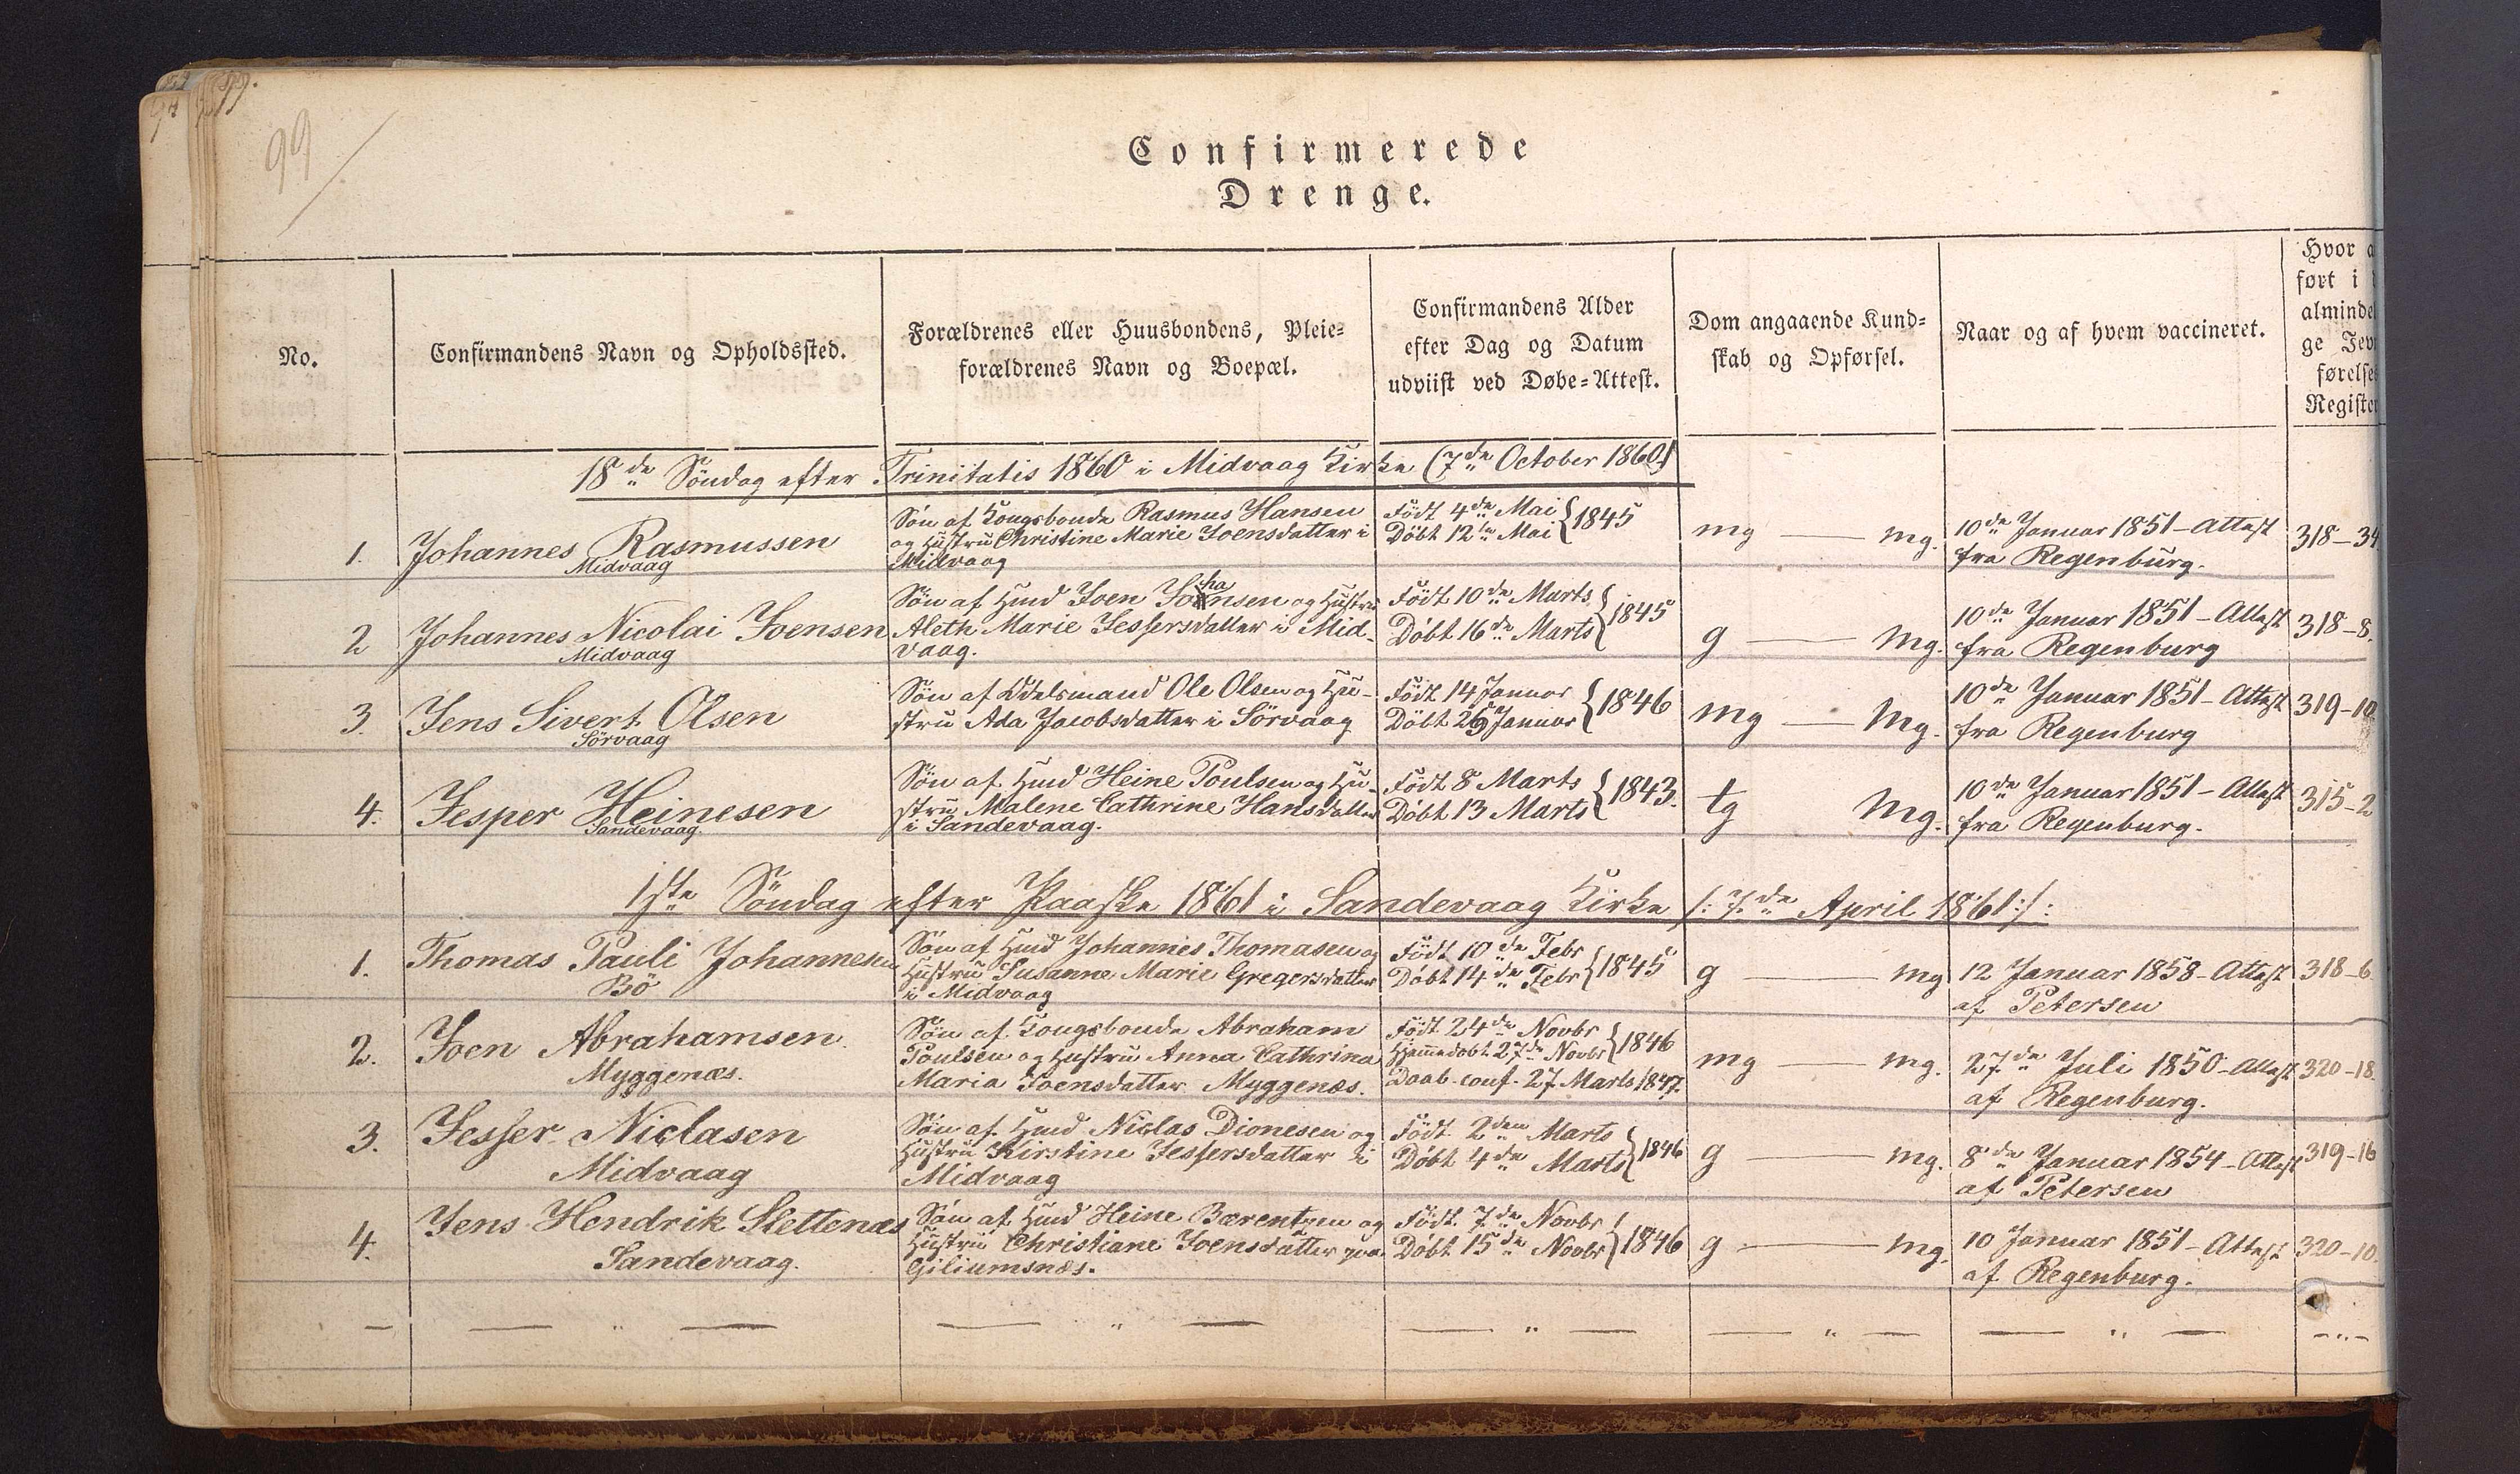 99.
99
Confirmerede
Drenge.
No.
Confirmandens Navn og Opholdssted.
Forældrenes eller Huusbondens, Pleie-
forældrenes Navn og Boepæl.
Confirmandens Alder
efter Dag og Datum
udviist ved Døbe-Attest.
Dom angaaende Kund-
skab og Opførsel.
Naar og af hvem vaccineret.
Hvor
ført i
alminde
ge Jev
førelse
Register
18de Söndag efter Trinitatis 1860 i Midvaag Kirke (7de October 1860)
1.
Johannes Rasmussen
Midvaag
Søn af Kongsbonde Rasmus Hansen
og Hustru Christine Marie Joensdatter i
Midvaag
Födt 4de Mai
Döbt 12te Mai
1845
mg — mg.
10de Januar 1851 - Attest
fra Regenburg.
318-34
2
Johannes Nicolai Joensen
Midvaag
Søn af Hmd Joen Johansen og Hustru
Aleth Marie Jessersdatter i Mid-
vaag.
Födt 10de Marts
Döbt 16de Marts
1845
g — mg.
10de Januar 1851 - Attest
fra Regenburg
318-8.
3.
Jens Sivert Olsen
Sörvaag
Søn af Odelsmand Ole Olsen og Hu-
stru Ada Jacobsdatter i Sörvaag
Födt 14 Januar
Döbt 26 Januar
1846
mg — mg.
10de Januar 1851 - Attest
fra Regenburg
319-10
4.
Jesper Heinesen
Sandevaag.
Søn af Hmd Heine Poulsen og Hu-
stru Malene Cathrine Hansdatter
i Sandevaag.
Födt 8 Marts
Döbt 13 Marts
1843.
tg mg.
10de Januar 1851 - Attest
fra Regenburg.
315-2
1ste Söndag efter Paaske 1861 i Sandevaag Kirke /: 7de April 1861 :/:
1.
Thomas Pauli Johannesen
Bö
Søn af Hmd Johannes Thomasen og
Hustru Susanne Marie Gregersdatter
i Midvaag
Födt 10de Febr
Döbt 14de Febr
1845
g — mg
12 Januar 1858 - Attest
af Petersen
318-6
2.
Joen Abrahamsen
Myggenæs.
Søn af Kongsbonde Abraham
Poulsen og Hustru Anna Cathrina
Maria Joensdatter Myggenæs.
Födt 24de Novbr
Hjemmedöbt 27de Novbr
1846
Daab. conf. 27 Marts 1847.
mg — mg.
27de Juli 1850 - Attest
af Regenburg.
320-18.
3.
Jesser Niclasen
Midvaag
Søn af Hmd Niclas Dionesen og
Hustru Kirstine Jessersdatter i
Midvaag
Födt 2den Marts
Döbt 4de Marts
1846
g — mg.
8de Januar 1854 - Attest
af Petersen
319-16
4.
Jens Hendrik Slettenæs
Sandevaag.
Søn af Hmd Heine Bærentzen og
Hustru Christiane Joensdatter paa
Giliumsnæs.
Födt 7de Novbr
Döbt 15de Novbr
1846
g — mg.
10 Januar 1851 - Attest
af Regenburg.
320-10.
— — " — — " — — " — — " — — " — - " -